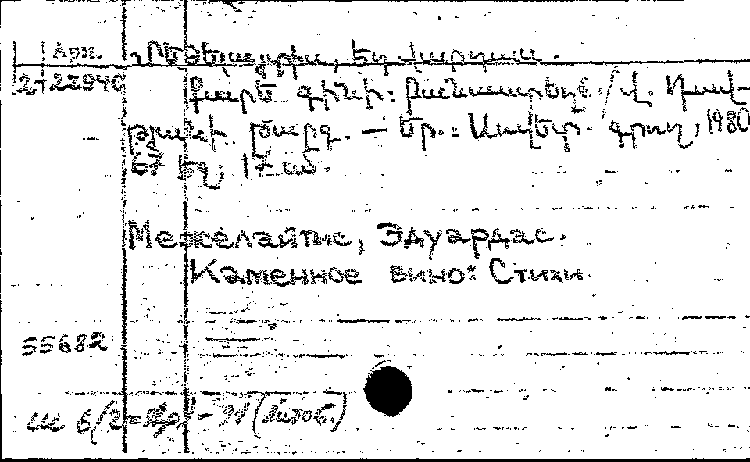 Арм. Մեժելայտիս, Էդուարդաս.
2-22940 Քարե գինի: Բանաստեղծ. / Վ. Դավ-
թյանի թարգ. — Եր.: Սովետ. գրող, 1980
67 էջ, 17 սմ.
Межелайтис, Эдуардас.
Каменное вино: Стихи.
55682